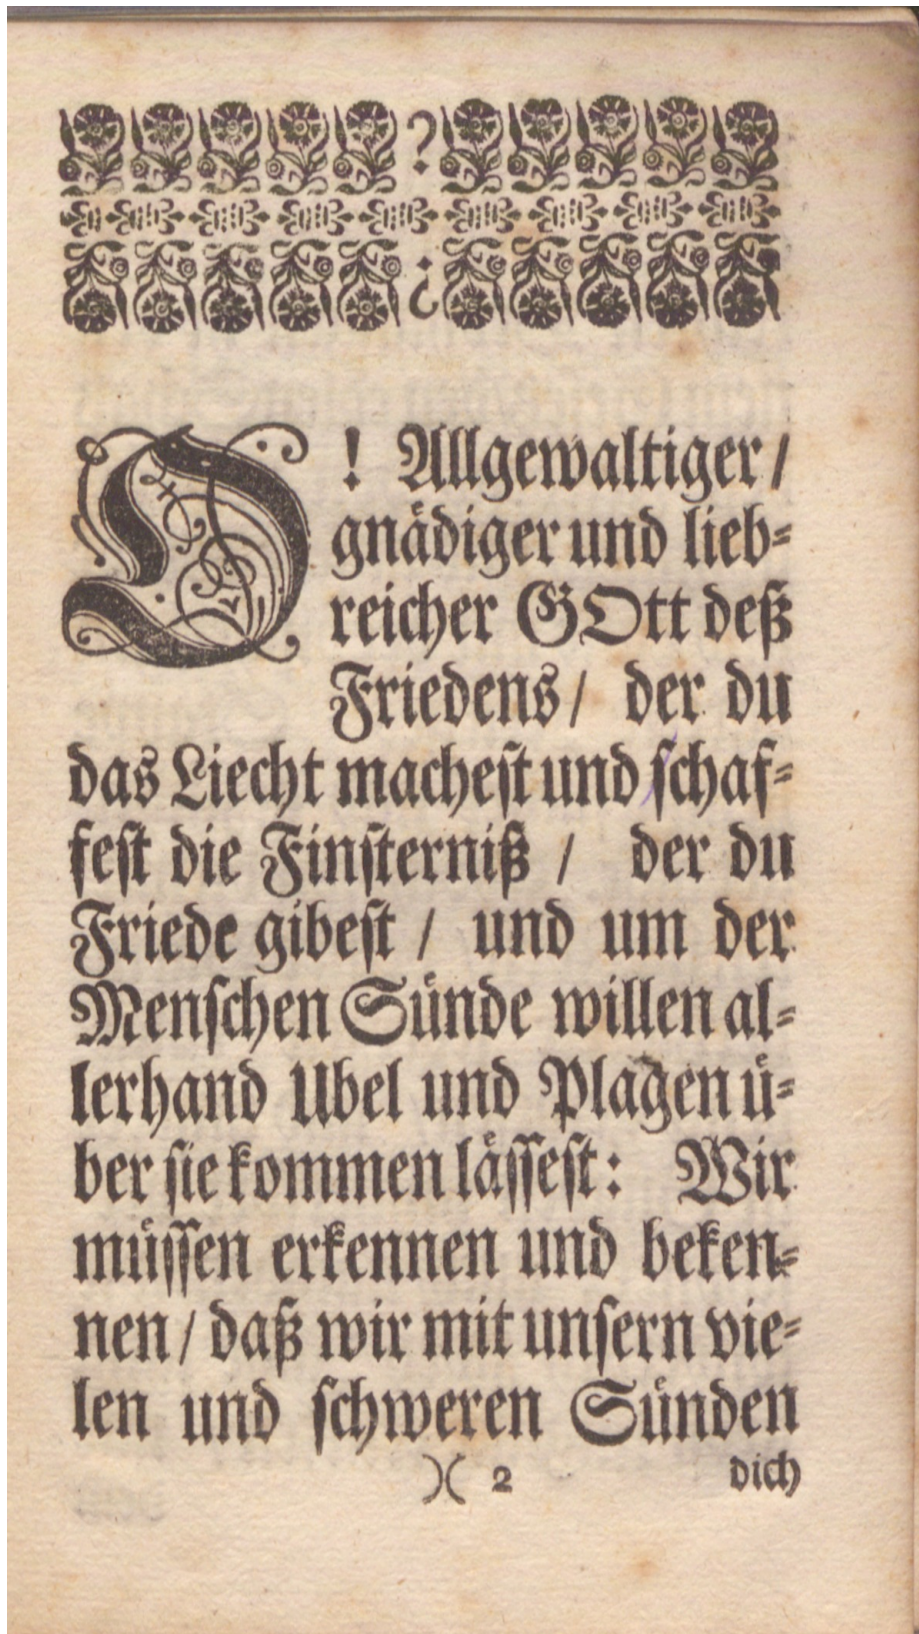 ?
¿
O! Allgewaltiger/
gnaͤdiger und lieb⸗
reicher GOtt deß
Friedens/ der du
das Liecht macheſt und ſchaf⸗
feſt die Finſterniß / der du
Friede gibeſt / und um der
Menſchen Suͤnde willen al⸗
lerhand Ubel und Plagen uͤ⸗
ber ſie kommen laͤſſeſt: Wir
muͤſſen erkennen und beken⸗
nen/ daß wir mit unſern vie⸗
len und ſchweren Suͤnden
)( 2 dich